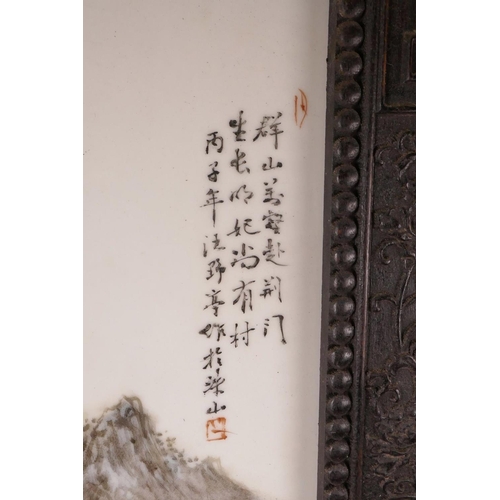 群山萬壑赴荆门
生长明妃尚有村
丙子年汪野亭作於珠山